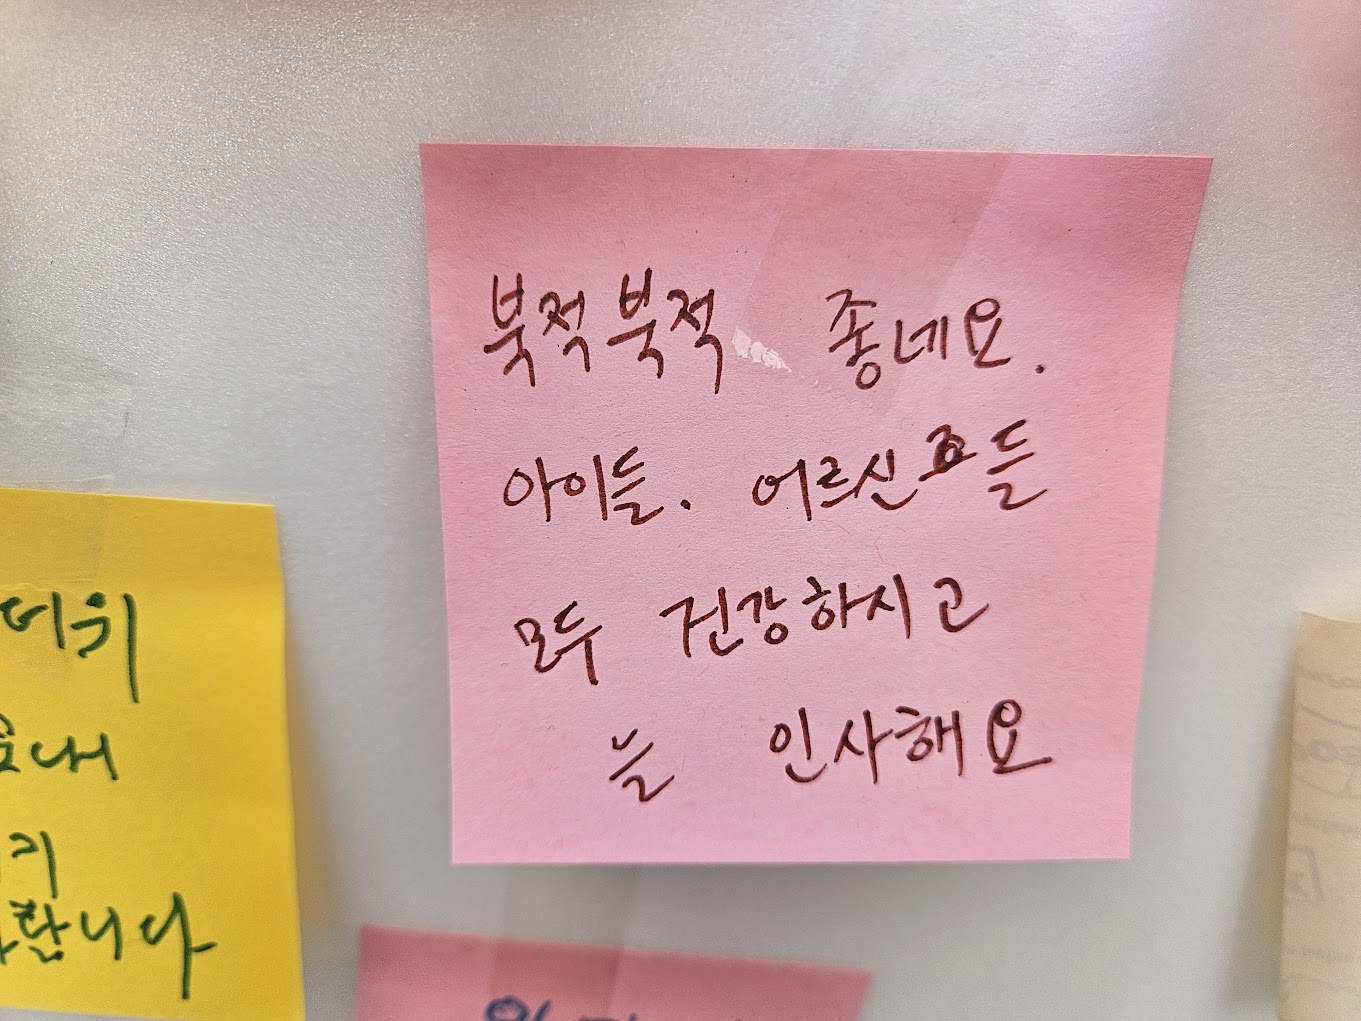 북적북적 좋네요.
아이들. 어르신분들
모두 건강하시고
늘 인사해요
더위
니다